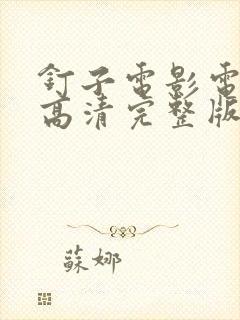 釘子電影電
高清完整版
蘇娜